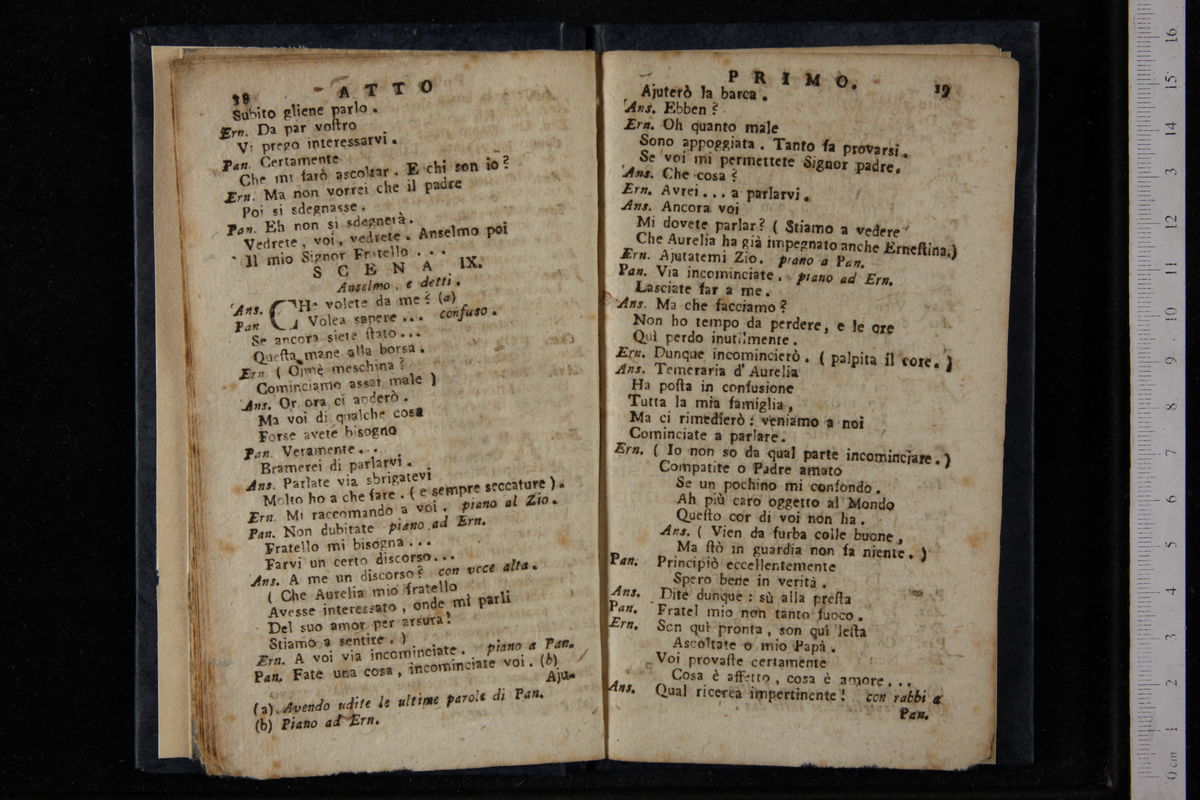 18 ATTO
Subito gliene parlo.
Ern. Da par voſtro
Vi prego intereſſarvi.
Pan. Certamente
Che mi farò aſcoltar. E chi ſon io?
Ern. Ma non vorrei che il padre
Poi si sdegnasse.
Pan. Eh non si sdegnerà.
Vedrete, voi, vedrete. Anselmo poi
Il mio Signor Fratello ...
SCENA IX.
Anselmo, e detti.
Ans. CHe volete da me? (a)
Pan Volea sapere ... confuso.
Se ancora siete ſtato...
Queſta mane alla borsa.
Ern ( Oimè meschina?
Cominciamo assai male )
Ans. Or ora ci anderò.
Ma voi di qualche cosa
Forse avete bisogno
Pan. Veramente...
Bramerei di parlarvi.
Ans. Parlate via sbrigatevi
Molto ho a che fare. ( e sempre seccature ).
Ern. Mi raccomando a voi. piano al Zio.
Pan. Non dubitate piano ad Ern.
Fratello mi bisogna...
Farvi un certo discorso...
Ans. A me un discorso? con voce alta.
( Che Aurelia mio fratello
Avesse interessato, onde mi parli
Del suo amor per arsura!
Stiamo a sentire. )
Ern. A voi via incominciate. piano a Pan.
Pan. Fate una cosa, incominciate voi. (b)
Aju-
(a) Avendo udite le ultime parole di Pan.
(b) Piano ad Ern.
PRIMO. 19
Ajuterò la barca.
Ans. Ebben?
Ern. Oh quanto male
Sono appoggiata. Tanto fa provarsi.
Se voi mi permettete Signor padre.
Ans. Che cosa?
Ern. Avrei... a parlarvi.
Ans. Ancora voi
Mi dovete parlar? ( Stiamo a vedere
Che Aurelia ha già impegnato anche Erneſtina.)
Ern. Ajutatemi Zio. piano a Pan.
Pan. Via incominciate. piano ad Ern.
Lasciate far a me.
Ans. Ma che facciamo?
Non ho tempo da perdere, e le ore
Quì perdo inutilmente.
Ern. Dunque incomincierò. ( palpita il core. )
Ans. Temeraria d'Aurelia
Ha poſta in confusione
Tutta la mia famiglia,
Ma ci rimedierò: veniamo a noi
Cominciate a parlare.
Ern. ( Io non so da qual parte incominciare. )
Compatite o Padre amato
Se un pochino mi confondo.
Ah più caro oggetto al Mondo
Queſto cor di voi non ha.
Ans. ( Vien da furba colle buone,
Ma ſtò in guardia non fa niente. )
Pan. Principiò eccellentemente
Spero bene in verità.
Ans. Dite dunque: sù alla preſta
Pan. Fratel mio non tanto fuoco.
Ern. Son quì pronta, son quì leſta
Ascoltate o mio Papà.
Voi provaſte certamente
Cosa è affetto, cosa è amore...
Ans. Qual ricerca impertinente! con rabbi a
Pan.